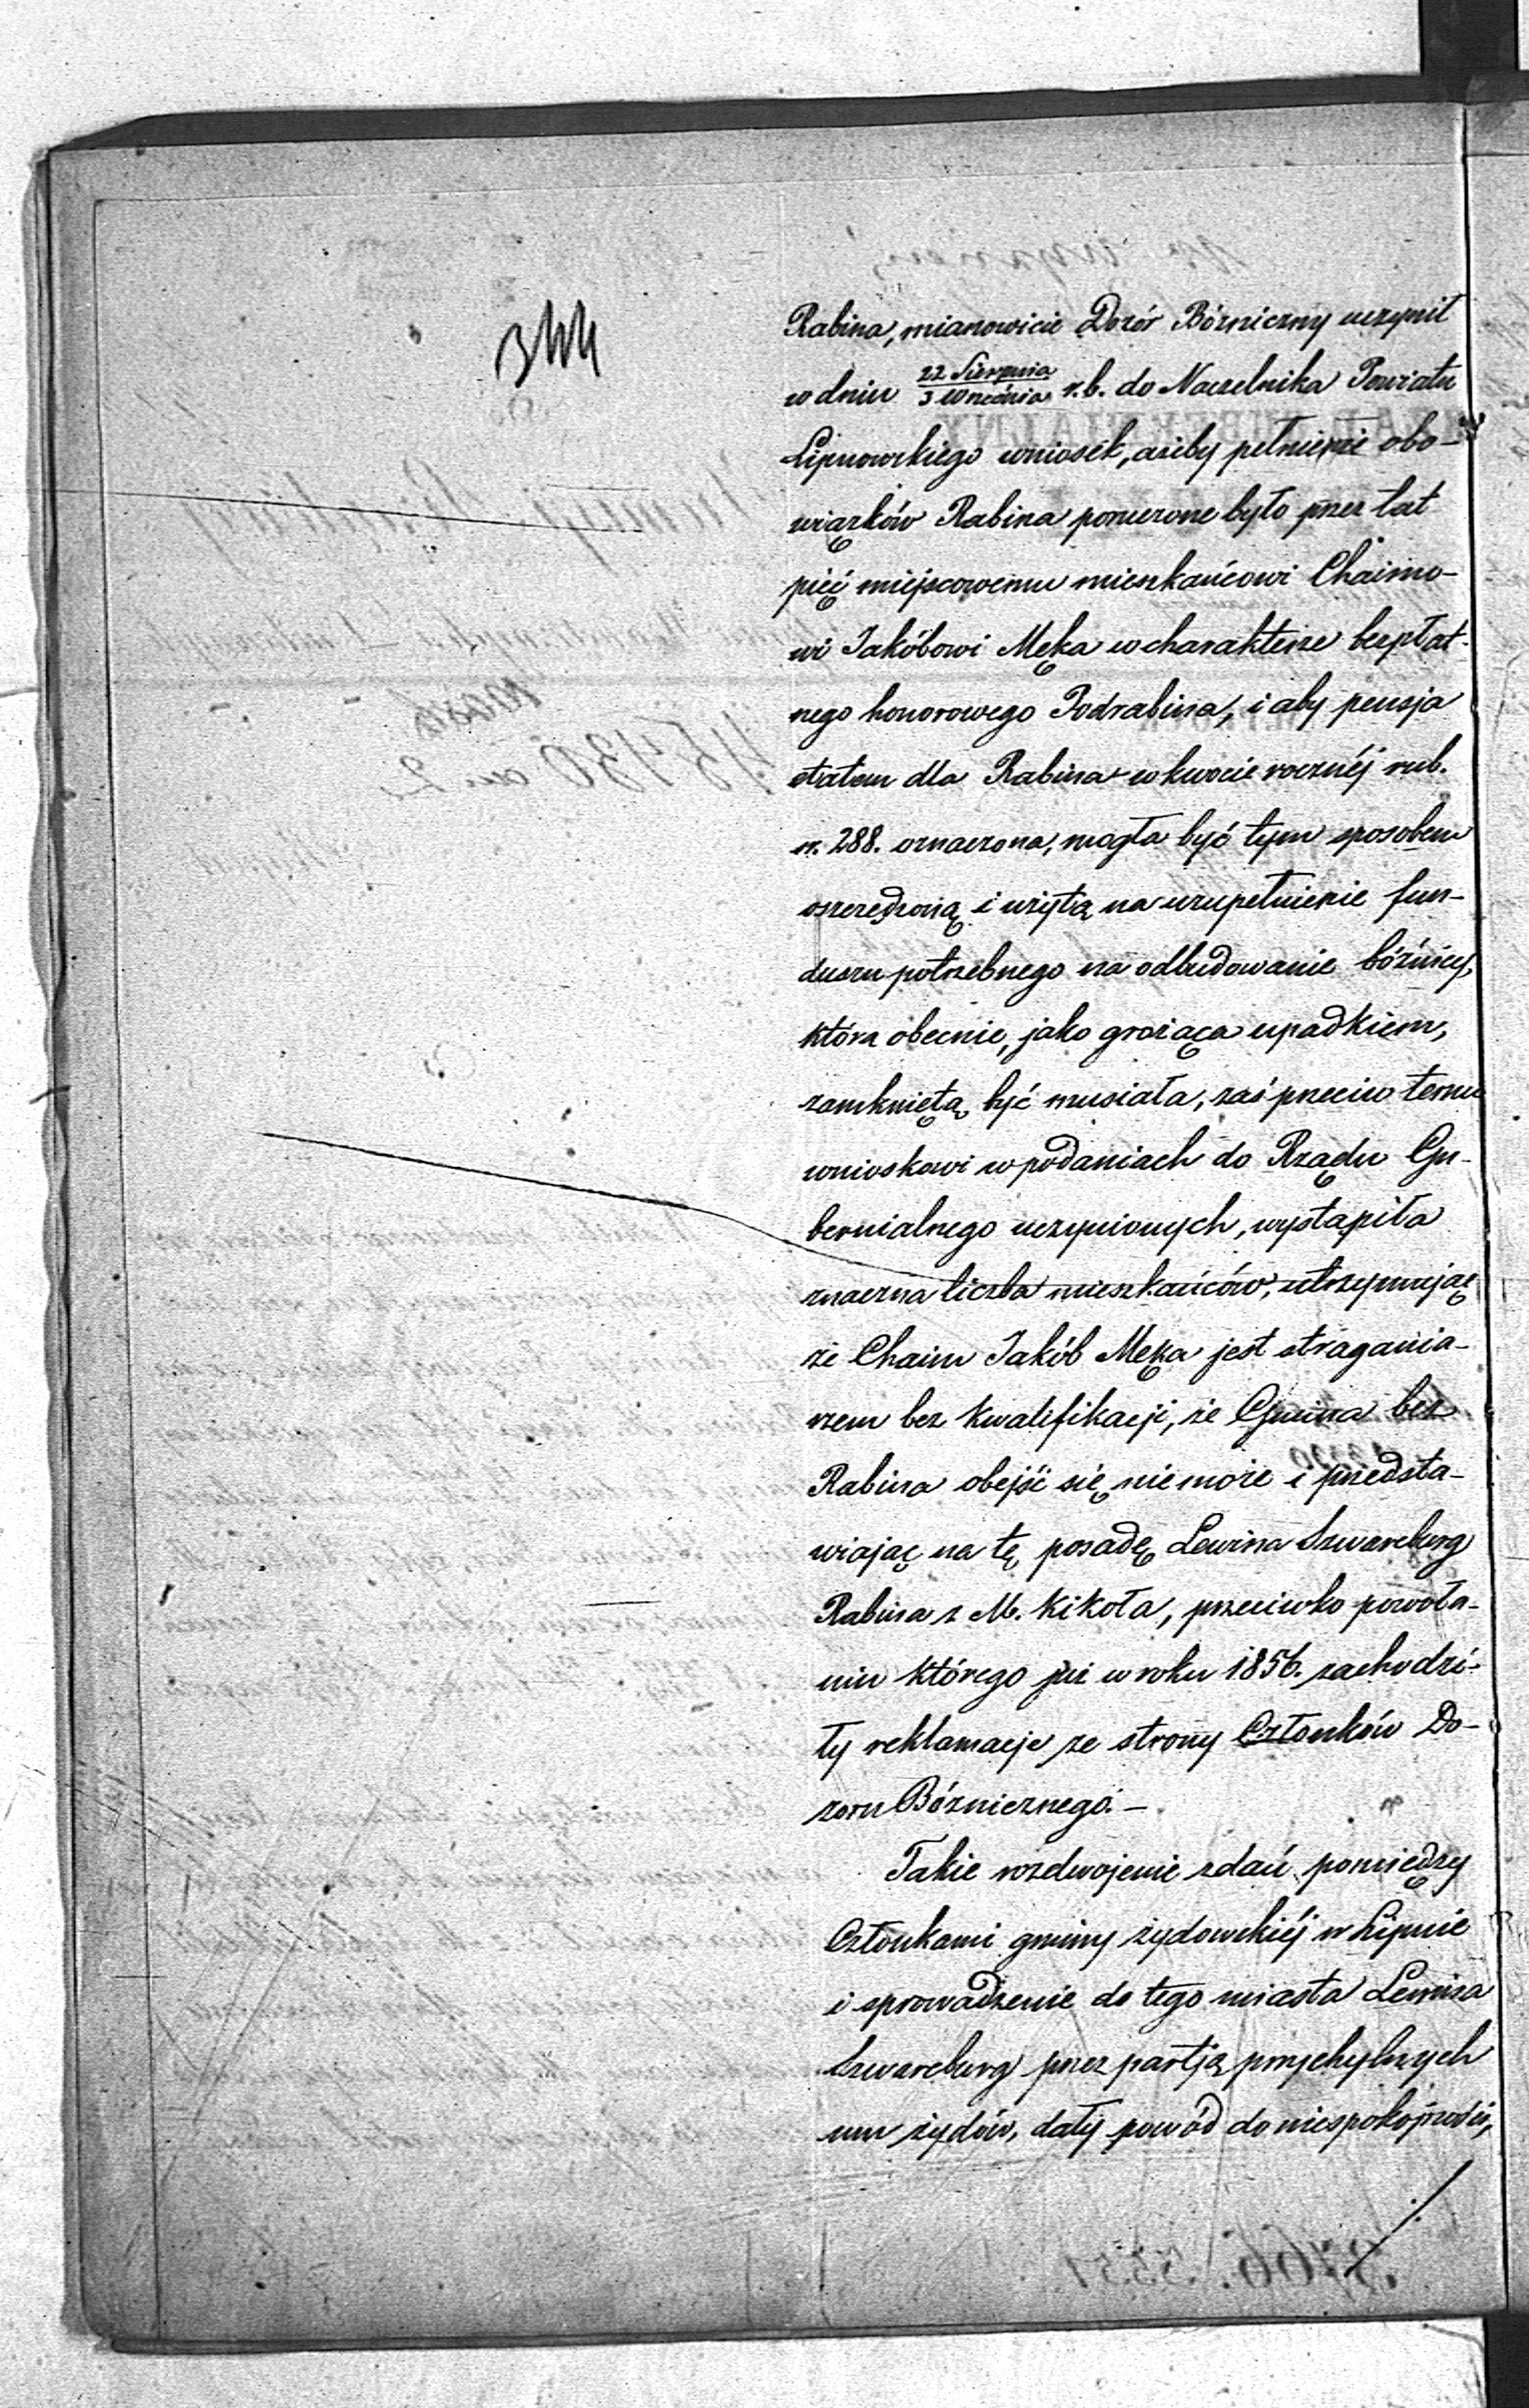 344
Rabina, mianowicie Dozór Bózniczny uczynił
w dniu 22 Sierpnia / 3 Września r. b. do Naczelnika Powiatu
Lipnowskiego wniosek, ażeby pełnienie obo-
wiązków Rabina poruczone było przez lat
pięć miejscowemu mieszkańcowi Chaimo-
wi Jakóbowi Męka w charakterze bezpłat-
nego honorowego Podrabina, i aby pensja
etatem dla Rabina w kwocie rocznéj rub.
sr. 288. oznaczona, mogła być tym sposobem
oszczędzoną i użytą na uzupełnienie fun-
duszu potrzebnego na odbudowanie bóźnicy,
która obecnie, jako grożąca upadkiem,
zamkniętą być musiała, zaś przeciw temu
wnioskowi w podaniach do Rządu Gu-
bernialnego uczynionych, wystąpiła
znaczna liczba mieszkańców, utrzymując
że Chaim Jakób Męka jest stragania-
rzem bez kwalifikacji, że Gmina bez
Rabina obejść się nie może i przedsta-
wiając na tę posadę Lewina Szwarcburg
Rabina z M. Kikoła, przeciwko powoła-
niu którego już w roku 1856. zachodzi-
ły reklamacje ze strony Członków Do-
zoru Bózniczneg­o. —
Takie rozdwojenie zdań pomiędzy
Członkami gminy żydowskiéj w Lipnie
i sprowadzenie do tego miasta Lewina
Szwarcburg przez partją przychylnych
mu żydów, dały powód do niespokójności,
./.